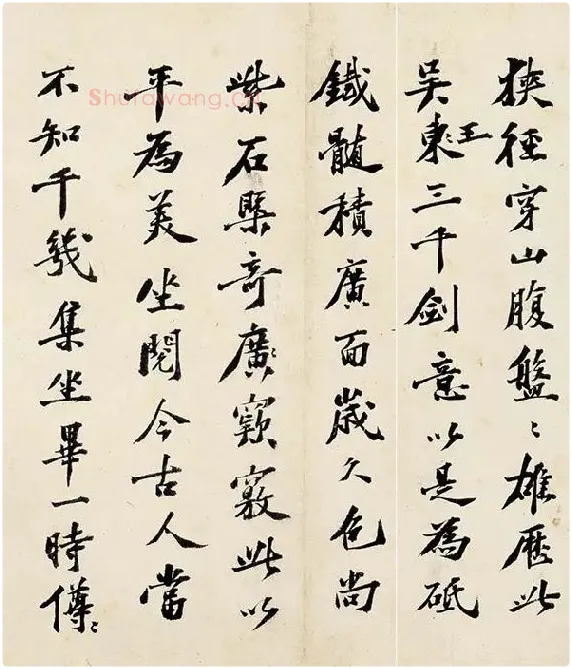 挾徑穿山腹盤〻雄歷此
吳王東〻三千劍意以是為砥
鐵髓積廣面歲久色尚
紫石槩奇廣窾竅此以
平為美坐閱今古人當
不知千㡬集坐畢一時僔〻
shufawang.cn